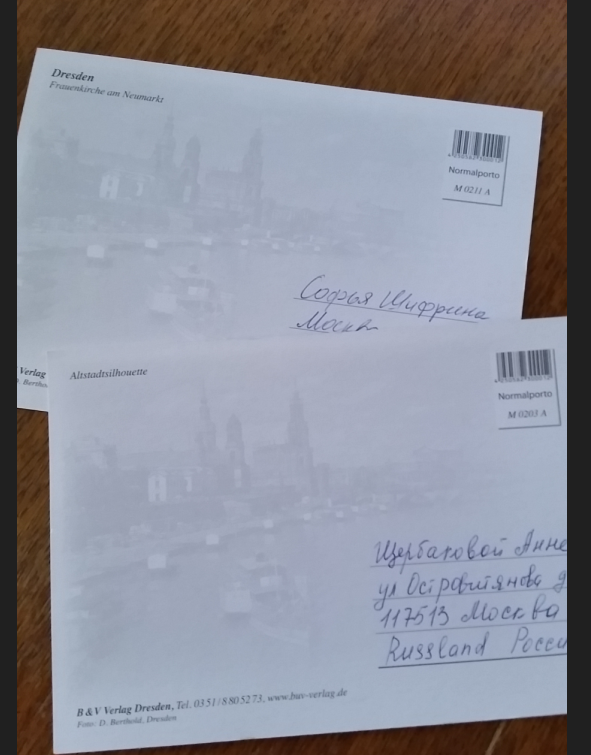 Dresden
Frauenkirche am Neumarkt
Normalporto
M 0211 A
Софья Шифрина
Москва
Verlag
Altstadtsilhouette
Normalporto
M 0203 A
Щербаковой Анне
ул Островитянова д
117513 Москва
Russland Росси
B & V Verlag Dresden, Tel. 03 51 / 8 80 52 73, www.buv-verlag.de
Foto: D. Berthold, Dresden